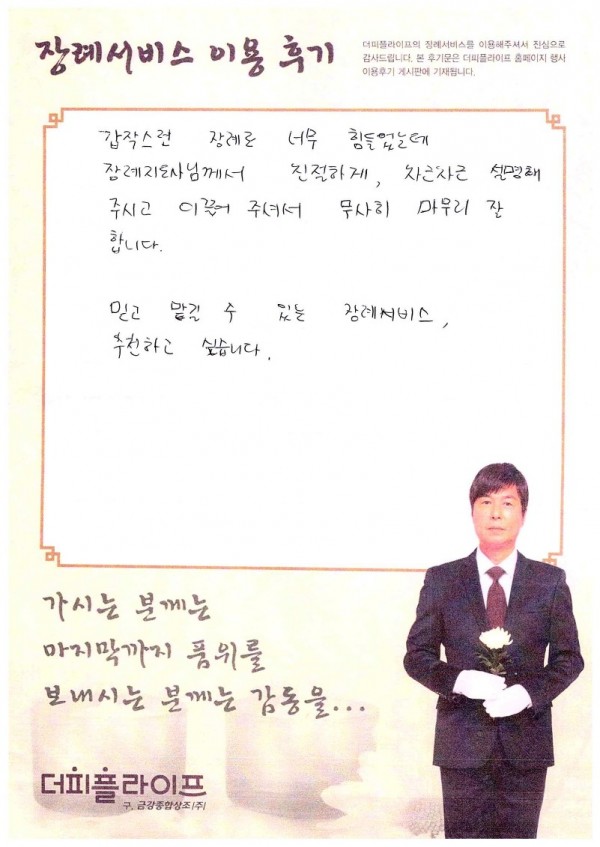 장례서비스 이용 후기
더피플라이프의 장례서비스를 이용해주셔서 진심으로
감사드립니다. 본 후기문은 더피플라이프 홈페이지 행사
이용후기 게시판에 기재됩니다.
갑작스런 장례로 너무 힘들었는데
장례지도사님께서 친절하게, 차근차근 설명해
주시고 이끌어 주셔서 무사히 마무리 잘
합니다.
믿고 맡길 수 있는 장례서비스,
추천하고 싶습니다.
가시는 분께는
마지막까지 품위를
보내시는 분께는 감동을...
더피플라이프
구. 금강종합상조(주)